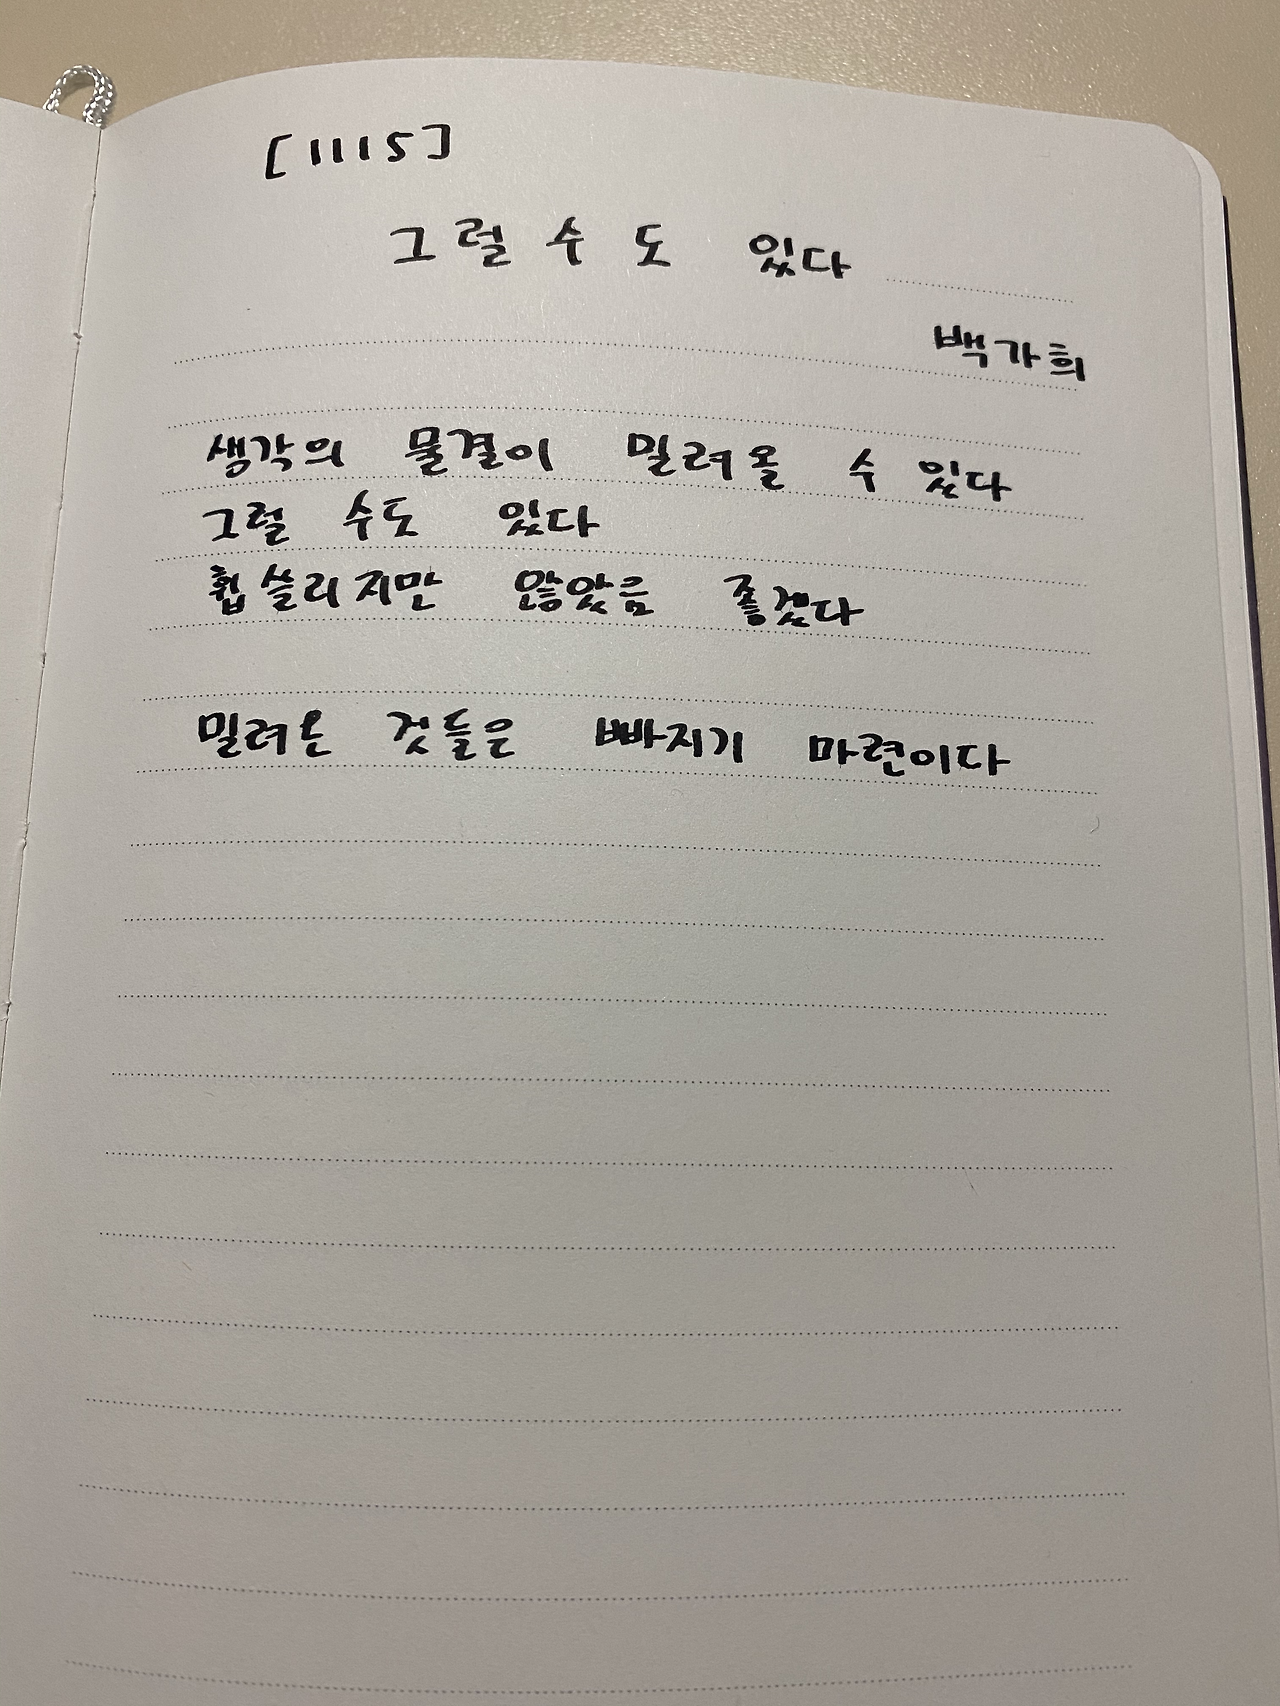 [1115]
그럴 수도 있다
백가희
생각의 물결이 밀려올 수 있다
그럴 수도 있다
휩쓸리지만 않았음 좋겠다
밀려온 것들은 빠지기 마련이다